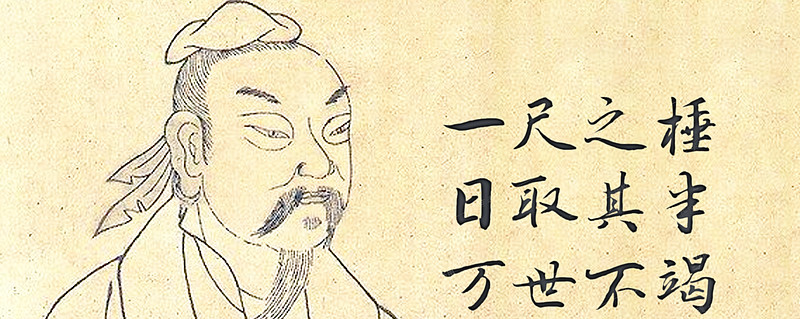 一尺之棰
日取其半
万世不竭